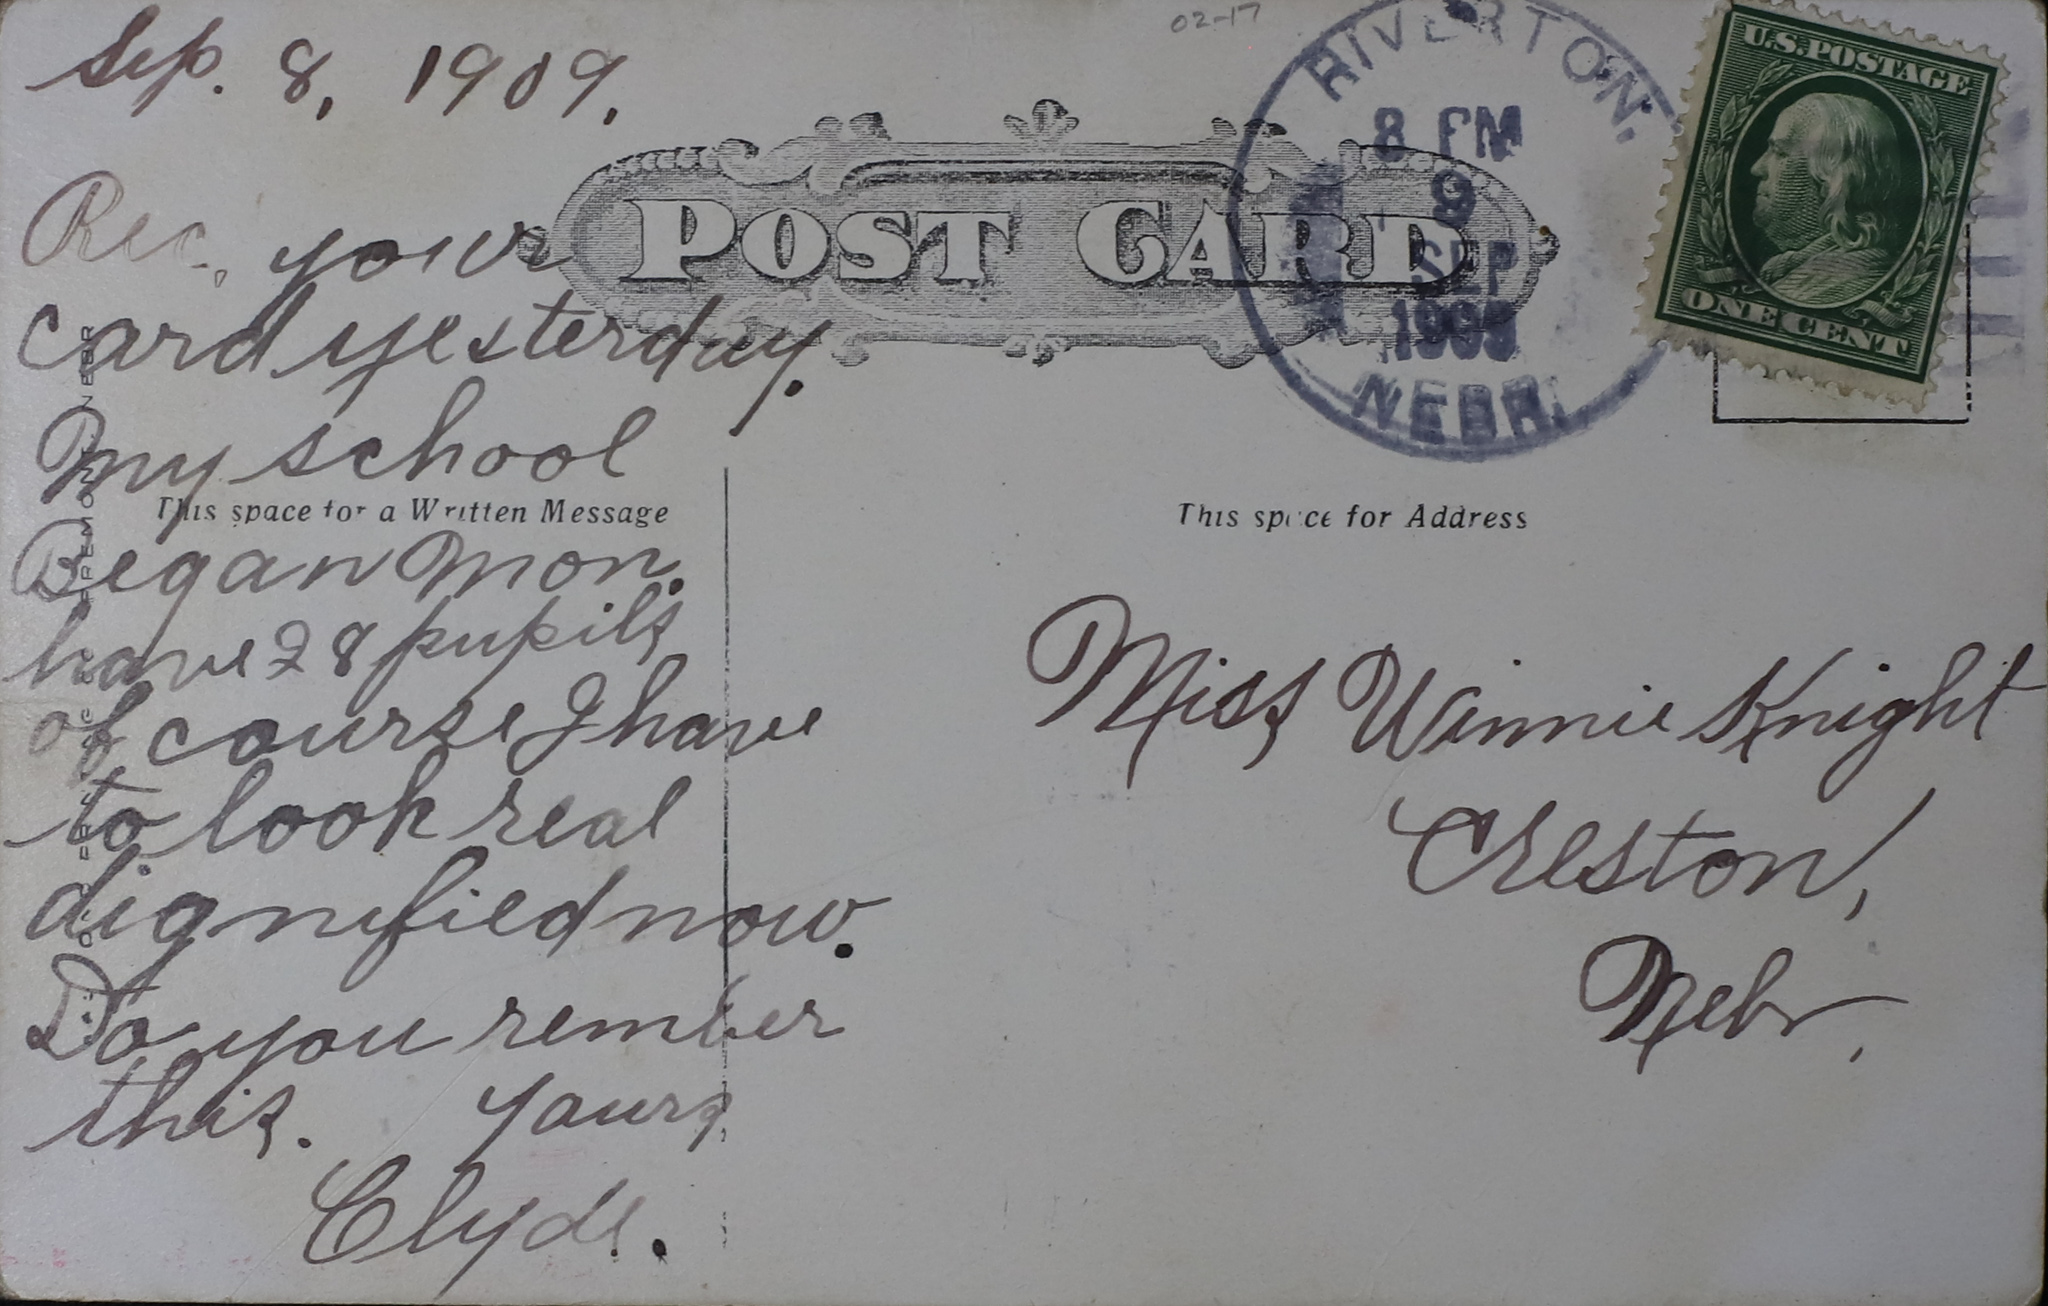 Sep. 8, 1909.
02-17
RIVERTON,
8 PM
9
SEP
1909
NEBR.
U.S. POSTAGE
ONE CENT
POST CARD
Rec. your
card yesterday.
My school
This space for a Written Message
Began Mon.
have 28 pupils
of course I have
to look real
dignified now.
Do you rember
this. Yours,
Clyde.
This space for Address
Miss Winnie Knight
Creston,
Nebr.
FREMONT, NEBR